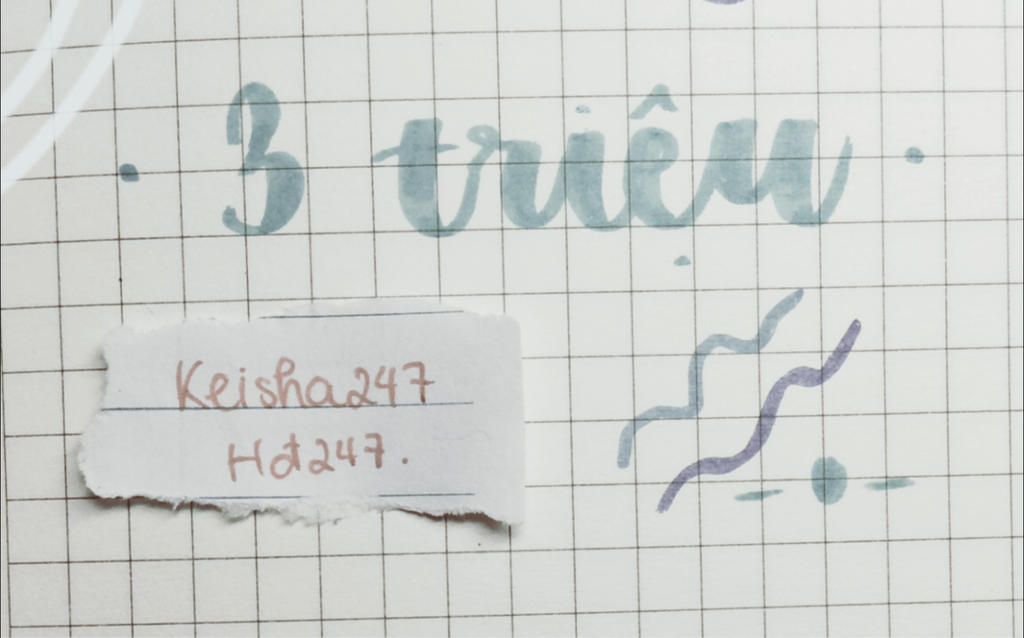 3 triệu
Keisha247
Hđ247.